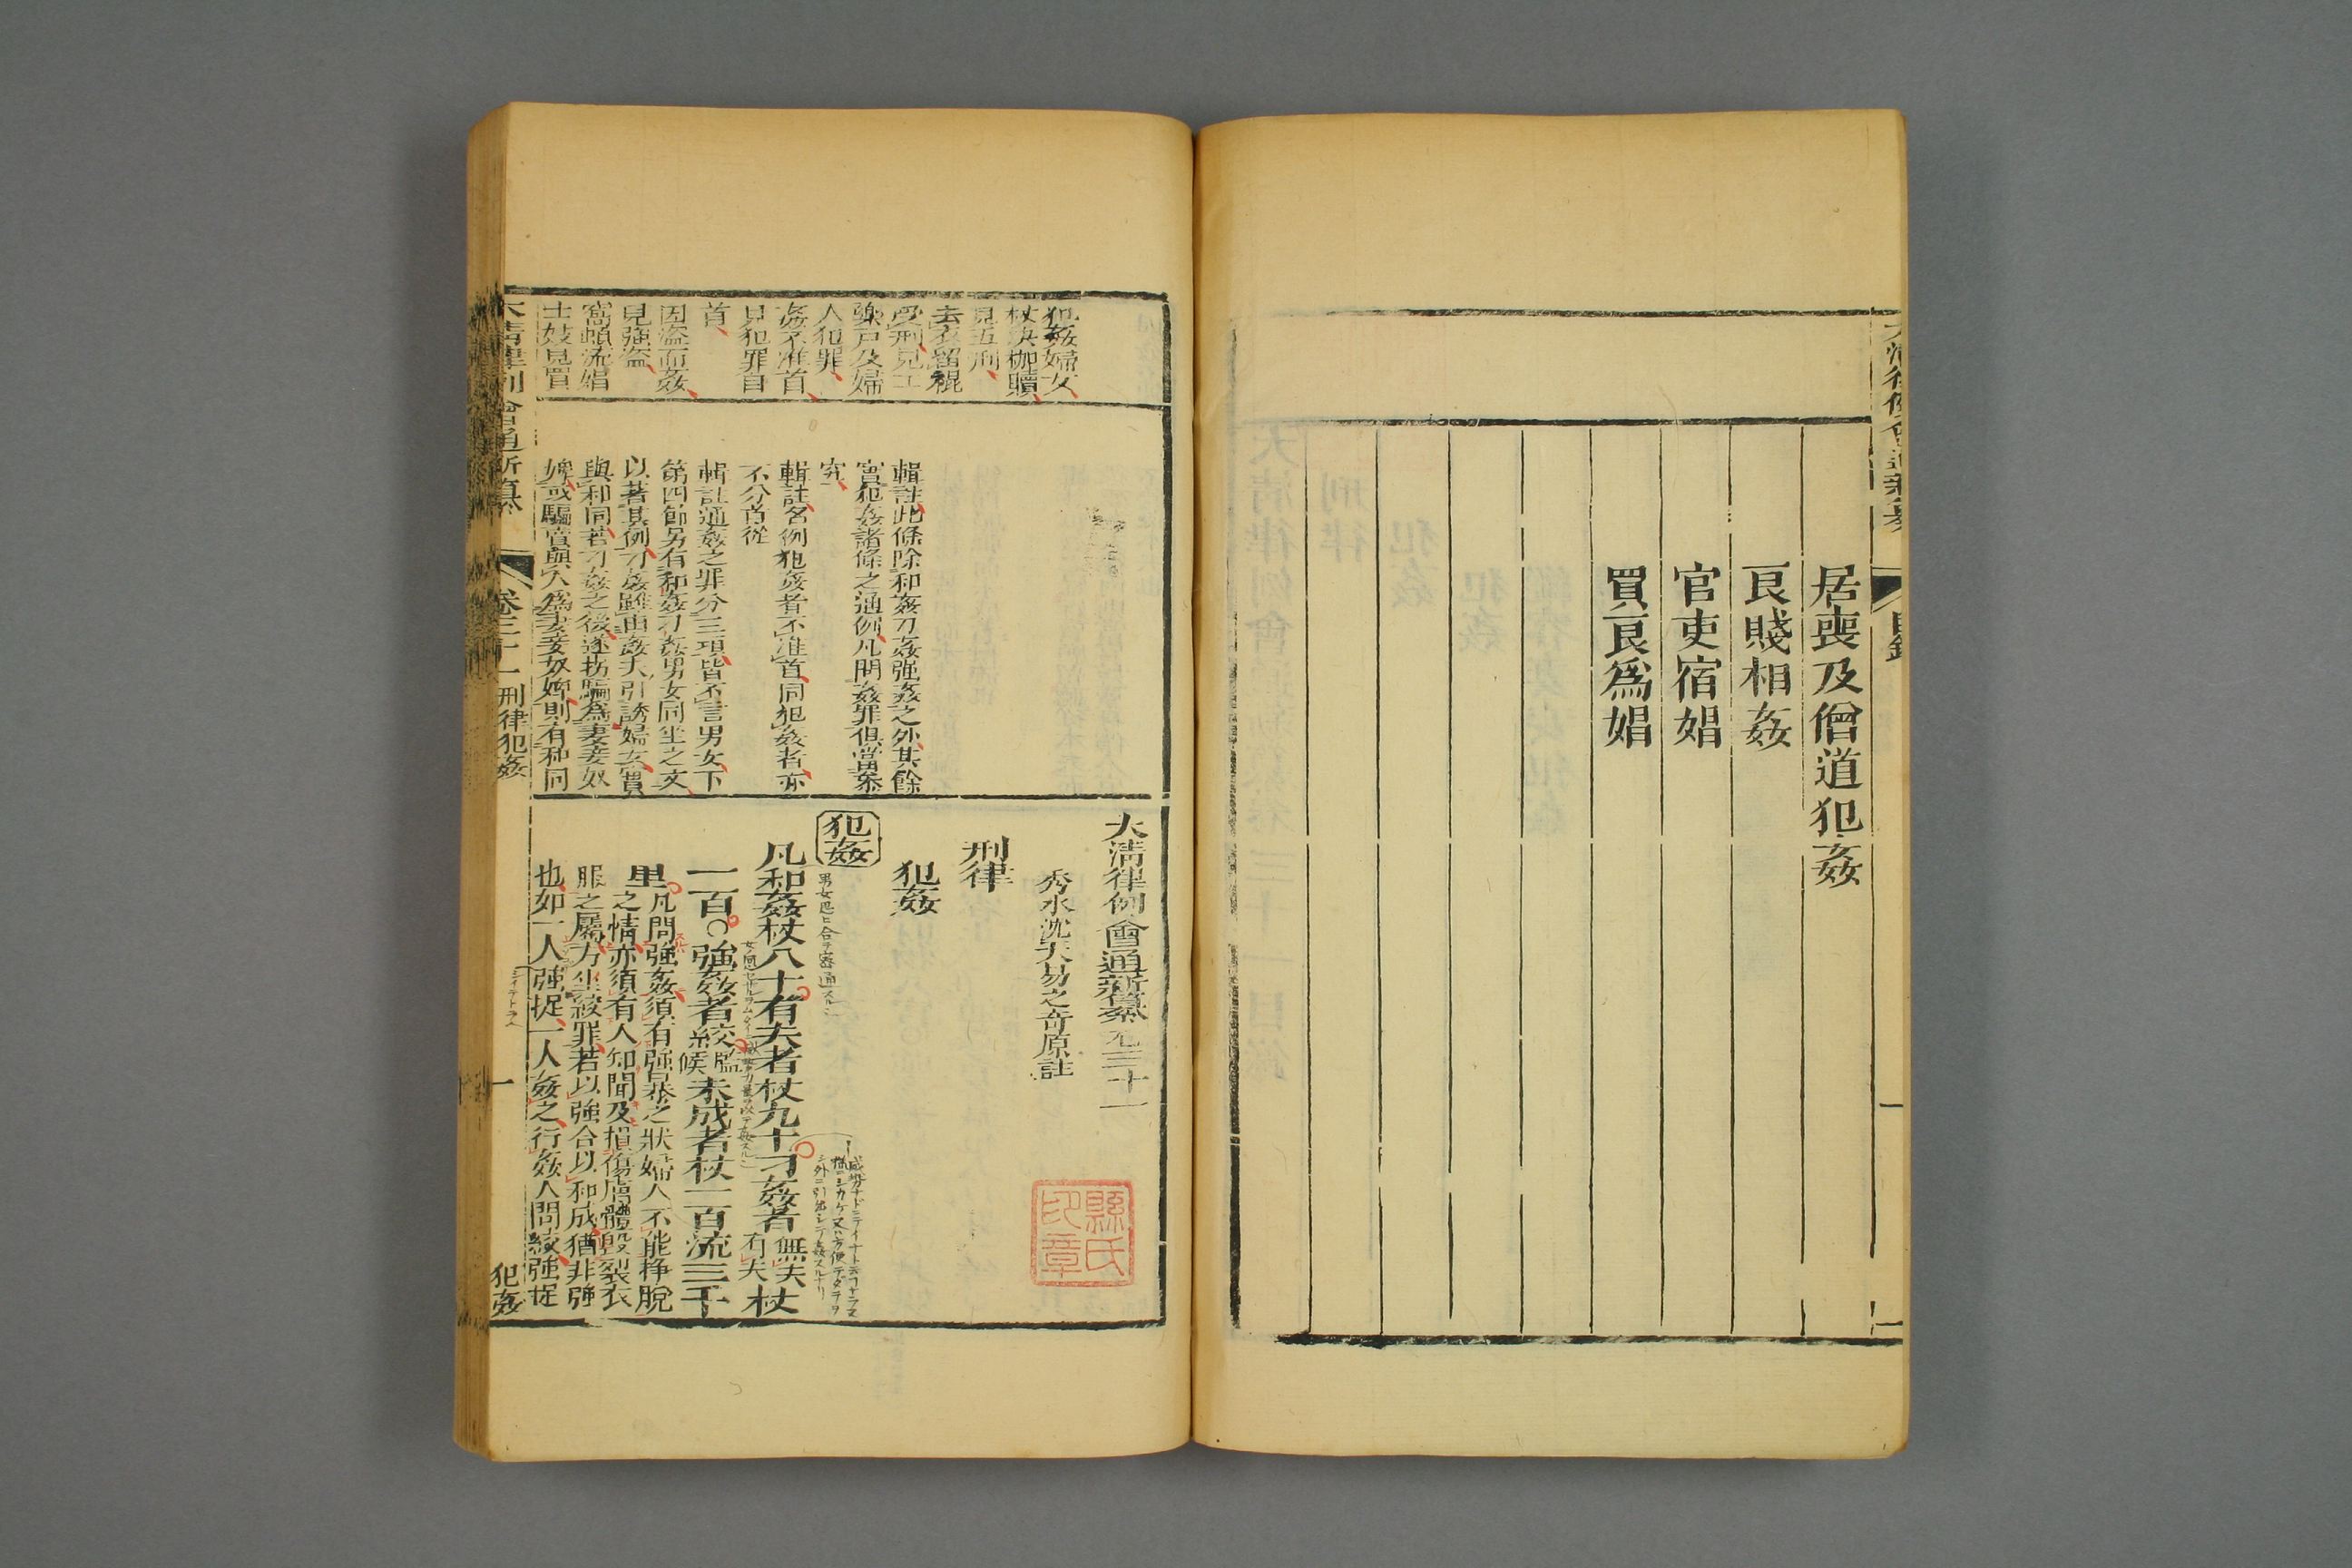 居喪及僧道犯姦
良賤相姦
官吏宿娼
買良爲娼
犯姦婦女
杖決枷贖
見五刑
去衣留裩
受刑見工
樂戶及婦
人犯罪
姦不准首
見犯罪自
首
因盜而姦
見強盜
窩頓流娼
土妓見買
輯註此條除和姦刁姦强姦之外其餘
當犯姦諸條之通例凡問姦罪俱當叅
究
輯註名例犯姦者不准首同犯姦者亦
不分首從
輯註通姦之罪分三項皆不言男女下
第四節另有和姦刁姦男女同坐之文
以著其例刁姦雖由姦夫引誘婦女實
與和同若刁姦之後遂拐騙爲妻妾奴
婢或騙賣與人爲妻妾奴婢則有和同
大清律例會通新纂卷三十一
秀水沈天易之奇原註
刑律
犯姦
犯姦
凡和姦杖八十有夫者杖九十刁姦者無夫有夫杖
一百○強姦者絞監候未成者杖一百流三千
里凡問強姦須有強暴之狀婦人不能掙脫
之情亦須有人知聞及損傷膚體毀裂衣
服之屬方坐絞罪若以強合以和成猶非強
也如一人強捉一人姦之行姦人問絞強捉
縣氏
印章
大清律例會通新纂
卷三十一 刑律犯姦
一
犯姦